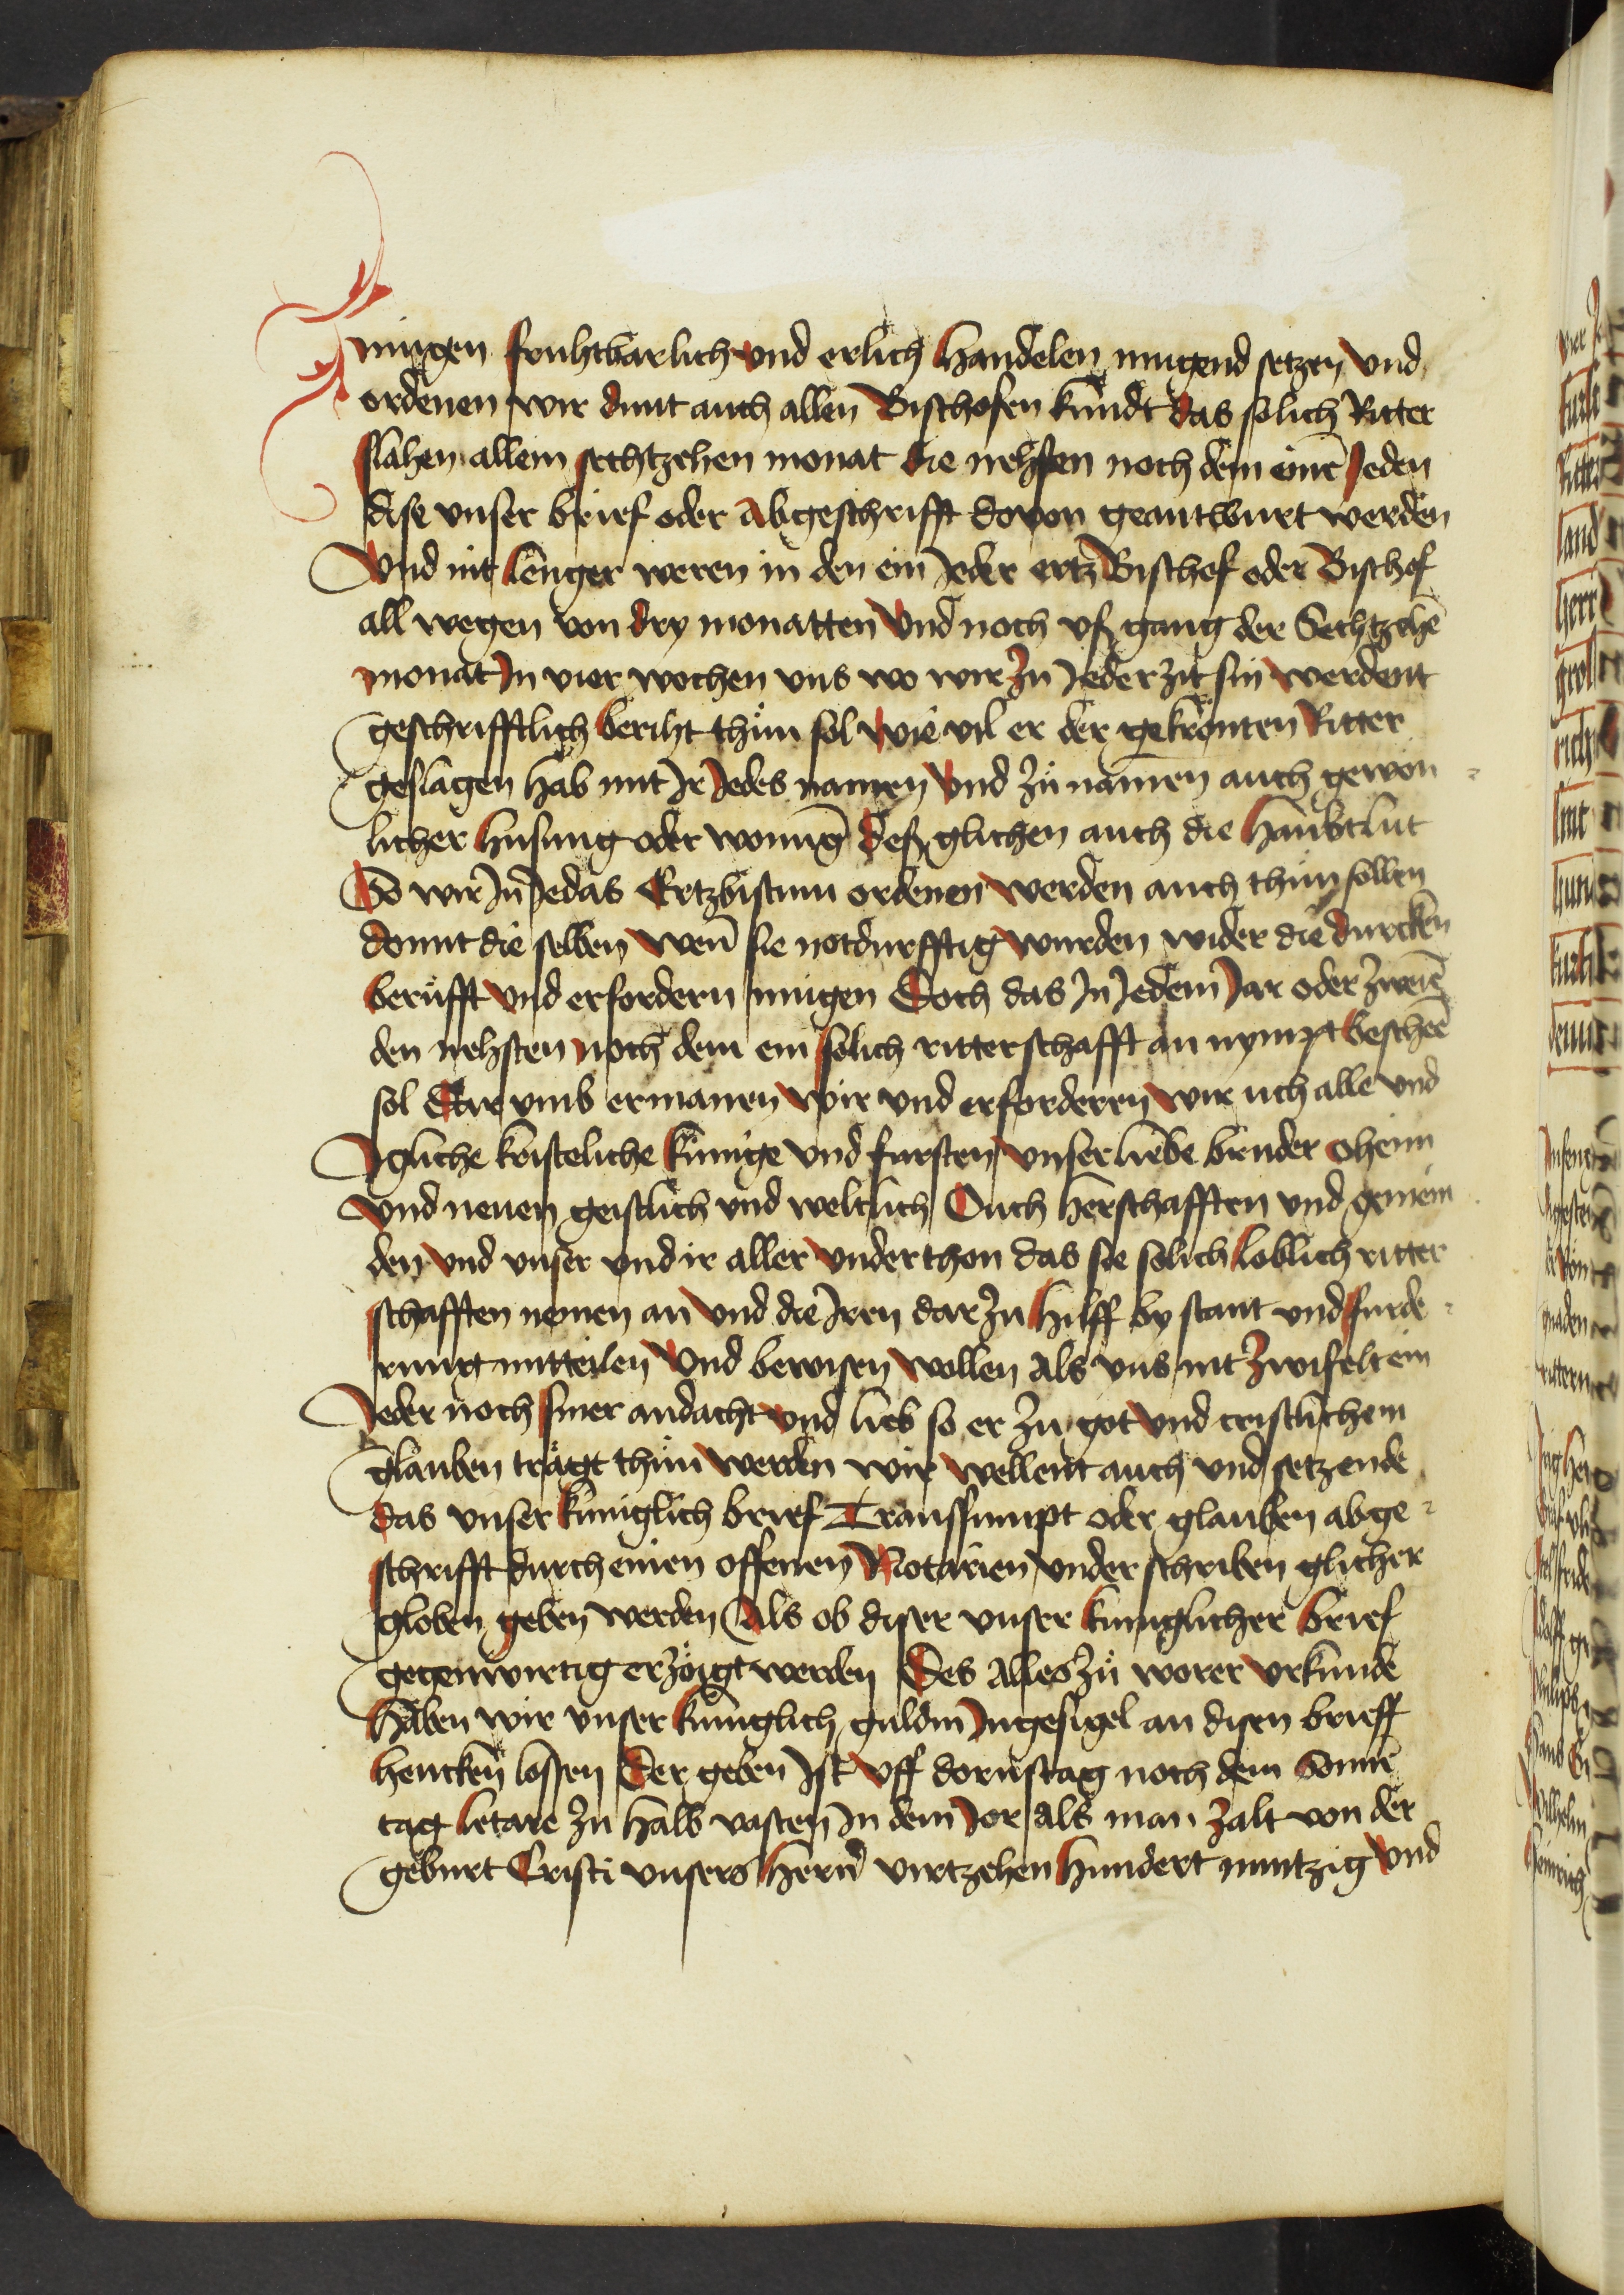 mugen fruhtbarlich vnd erlich handelen mugend setzen vnd
ordenen wir dunt auch allen Bischofen kundt das solich Ritter
slahen allein sechtzehen monat die nehsten noch dem eime Jeden
dise vnser brief oder Abgeschrifft dovon geantwurt werden
Vnd nit lenger weren in den ein Jeder ertz Bischof oder Bischof
all wegen von dry monatten Vnd noch vß gang der Sechtzehē
monat In vier wochen vns wo wir zu Jeder zit sin werdent
geschrifftlich beriht thůn sol wie vil er der gekrönten Ritter
geslagen hab mit Ir Jedes namen Vnd zů namen auch gewon
licher husung oder wonūg Deß glichen auch die haubtlut
So wir In Jedas Ertzbistum ordenen werden auch thůn sollen
domit die selben wen̄ sie notdurfftig wurden wider die durcken
berůfft vnd erfordern mugen Doch das In Jedem Jar oder zweiē
den nehsten noch dem ein solich ritterschafft an nympt bescheē
sol Dar vmb ermanen wir vnd erforderen wir uch alle vnd
Igliche kristeliche kunige vnd fursten vnser liebe bruder oheim
vnd neuen geistlich vnd weltlich Ouch herschafften vnd gemein
den vnd vnser vnd ir aller vnderthon das sie solich loblich ritter
schafften nemen an vnd die Iren dar zu hilff by stant vnd furde
rung mitteilen Vnd bewisen wollen Als vns nit zwifelt ein
Jeder noch siner andacht vnd lieb so er zu got vnd cristlichem
glauben trägt thůn werden wir wellent auch vnd setzende
das vnser kuniglich brief Transsumpt oder glauben abge
schrifft durch einen offenen Notarien vnder schriben glicher
globen geben werden Als ob diser vnser kuniglicher brief
gegenwirtig erzöigt werden Des Alles zů worer vrkunde
Haben wir vnser kuniglich guldin Ingesigel an disen brieff
hencken lossen Der geben Ist Vff dornstag noch dem Sonnē
tag letare zu halb vasten In dem Jor als man zalt von der
geburt Cristi vnsers hern̄ virtzehen hundert nuntzig Vnd